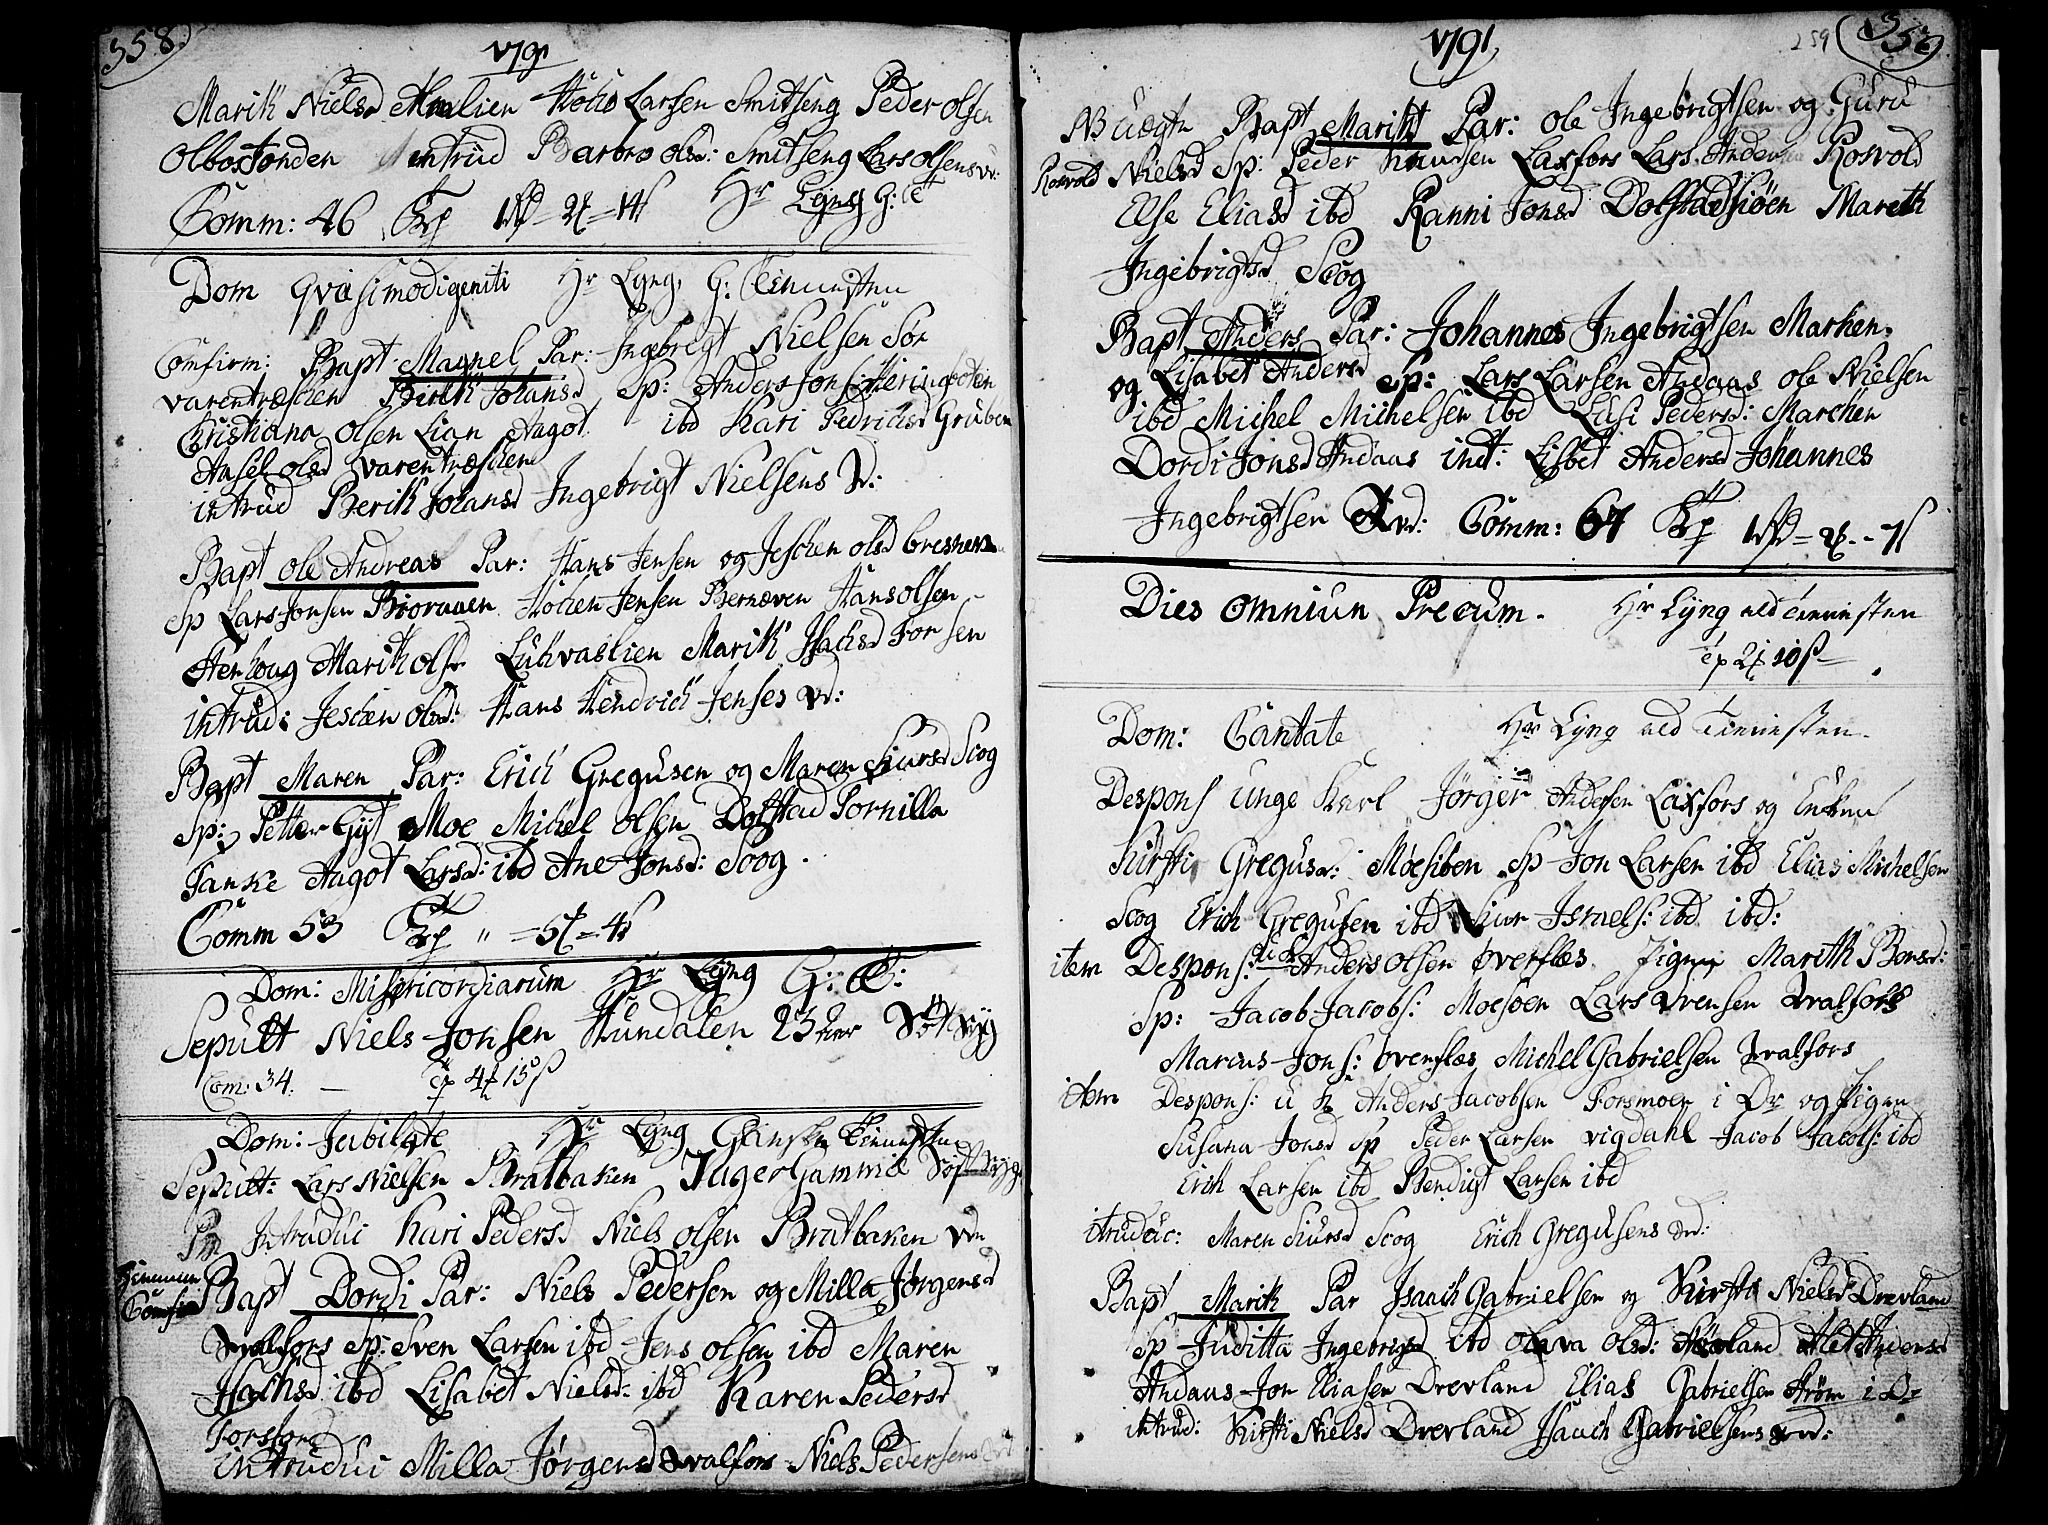 358.
1791
Marith Nielsd Almlien Lars Larsen Smitseng Peder Olsen
Olbostonden intrud Barbro Olsd: Smitseng Lars Olsens
Comm: 46 Hr Lyng G: T
Dom Qvasimodogeniti Hr Lyng. G: Tienneste
Confirm: Bapt Magnel Par: Ingebrigt Nielsen Sör
varentræschen Birith Johansd Sp: Anders Jons Heringboten
Christiana Olsen Lian Aagot ibd Kari Fedrichsd Gruben
Ansel Olsd varentræschen
intrud Berith Johansd Ingebrigt Nielsens
Bapt Ole Andreas Par: Hans Jensen og Jeschen Olsd
Sp Lars Jonsen Bioraaen Jensen Bernæven Hans Olsen
Stenhoug Marith Olsd Luhvaslien Marith Isachsd Forsen
intrud: Jeschen Olsd: Hans Hendrich Jenses
Bapt Maren Par: Erich Gregusen og Maren Siursd Scog
Sp: Petter Gyt Moe Michel Olsen Dolstad Pornilla
Tanke Aagot Larsd: ibd Ane Jonsd: Scog.
Comm 53
Dom: Misericordiarum Hr Lyng G: T:
Sepult Niels Jonsen Hundalen 23 aar
Com: 34. 15 ß
Dom: Jubilate Hr Lyng
Sepult: Lars Nielsen Bratbaken Gammel
Introduc Kari Pedersd Niels Olsen Bratbaken
Bapt Dordi Par: Niels Pedersen og Milla Jörgensd
Qvalfors Sp: Sven Larsen ibd Jens Olsen ibd Maren
Isachsd ibd Lisabet Nielsd: ibd Karen Pedersd
Forsfors
introduc Milla Jörgensd Qvalfors Niels Pedersens
1791
259
359
NB Uægte Bapt Marith Par: Ole Ingebrigtsen og Guru
Rosvold Nielsd Sp: Peder Knudsen Laxfors Lars Anders Rosvold
Else Eliasd ibd Ranni Jonsd Dolstadsiöen Mareth
Ingebrigtsd Scog
Bapt Anders Par: Johannes Ingebrigtsen Marken.
og Lisabet Andersd Sp: Lars Larsen Andaas Ole Nielsen
ibd Michel Michelsen ibd Lusi Pedersd: Marchen
Dordi Jonsd Andaas int: Lisbet Andersd Johannes
Ingebrigtsen Comm: 67
Dies Omniun Precum. Hr Lyng ald tiennisten
10 ß
Dom: Cantate Hr Lyng ald Tiennisten.
Despons Unge Karl Jörgen Andersen Laxfors og Enken
Kirsti Gregusd: Moesiöen Sp Jon Larsen ibd Elias Michelsen
Scog Erich Gregusen ibd Siur Israels: ibd ibd:
item Despons: Anders Olsen Øverflæs Pigen Marith Bonsd:
Sp: Jacob Jacobs: Moesöen Lars Svensen Qvalfors
Marcus Jons: Overflæs Michel Gabrielsen Qvalfors
item Despons: U K Anders Jacobsen Forsmoen i Dr og Pigen
Susana Jonsd Sp Peder Larsen Vigdahl Jacob Jacobs: ibd
Erich Larsen ibd Bendigt Larsen ibd
itruduc: Maren Siursd Scog Erich Gregusens
Bapt Marith Par Isaach Gabrielsen og Kirsti Nielsd Drevland
Sp Juditta Ingebrigsd ibd Olava Olsd: Alet Andersd
Andaas Jon Eliasen Drevland Elias Gabrielsen Ström i Dr
intrud: Kirsti Nielsd Drevland Isaach Gabrielsens